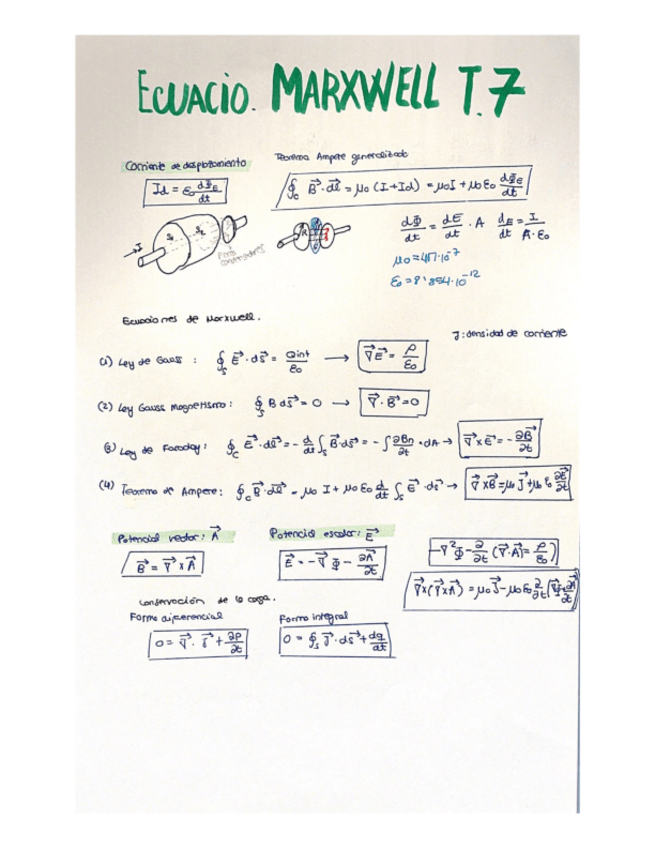 ECUACIO. MARXWELL T.7
Corriente de desplazamiento
Teorema Ampere generalizado
Id = ε₀ dΦ_E/dt
∮_C B⃗·dl⃗ = μ₀ (I+Id) = μ₀I + μ₀ε₀ dΦ_E/dt
dΦ/dt = dE/dt · A   dE/dt = I/(A·ε₀)
μ₀ = 4π·10⁻⁷
ε₀ = 8'854·10⁻¹²
Ecuaciones de Marxwell.
J: densidad de corriente
(1) Ley de Gauss : ∮_S E⃗·ds⃗ = Qint/ε₀ → ∇⃗E⃗ = ρ/ε₀
(2) Ley Gauss Magnetismo : ∮_S B ds⃗ = 0 → ∇⃗·B⃗ = 0
(3) Ley de Faraday : ∮_C E⃗·dl⃗ = - d/dt ∫_S B⃗·ds⃗ = - ∫ ∂Bn/∂t · dA → ∇⃗×E⃗ = - ∂B⃗/∂t
(4) Teorema de Ampere : ∮_C B⃗·dl⃗ = μ₀ I + μ₀ ε₀ d/dt ∫_S E⃗·ds⃗ → ∇⃗×B⃗ = μ₀ J⃗ + μ₀ ε₀ ∂E⃗/∂t
Potencial vector: A⃗
Potencial escalar: E⃗
B⃗ = ∇⃗×A⃗
E⃗ = -∇⃗Φ - ∂A⃗/∂t
-∇²Φ - ∂/∂t (∇⃗·A⃗) = ρ/ε₀
∇⃗×(∇⃗×A⃗) = μ₀J⃗ - μ₀ε₀ ∂/∂t (∇⃗Φ + ∂A⃗/∂t)
Conservación de la carga.
Forma diferencial
Forma integral
0 = ∇⃗·J⃗ + ∂ρ/∂t
0 = ∮_S J⃗·ds⃗ + dq/dt